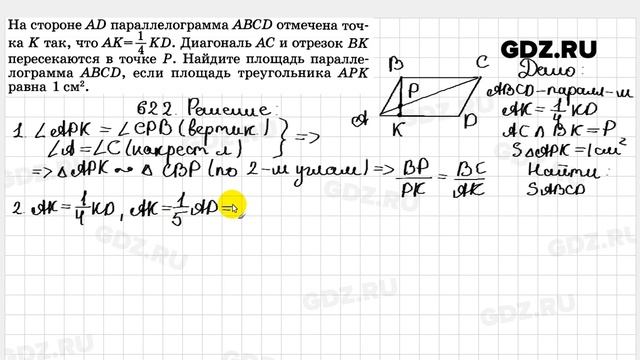 На стороне AD параллелограмма ABCD отмечена точ-
ка K так, что AK=1/4 KD. Диагональ AC и отрезок BK
пересекаются в точке P. Найдите площадь паралле-
лограмма ABCD, если площадь треугольника APK
равна 1 см².
GDZ.RU
B C
P
A K D
Дано:
ABCD-парал-м
AK=1/4 KD
AC∩BK=P
S△APK=1см²
Найти:
SABCD
622. Решение:
1. ∠APK = ∠CPB (вертик)
∠A=∠C (накрест л) } =>
=> △APK ~ △CBP (по 2-м углам) => BP/PK = BC/AK
2. AK=1/4 KD, AK=1/5 AD =>
GDZ.RU
GDZ.RU
GDZ.RU
GDZ.RU